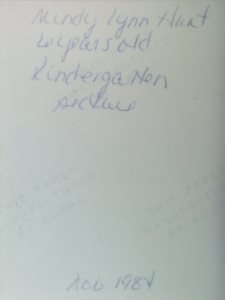 Mindy Lynn Hunt
years old
Kindergarten
picture
THIS PAPER
MANUFACTURED
BY KODAK
THIS PAPER
MANUFACTURED
BY KODAK
Nov 198